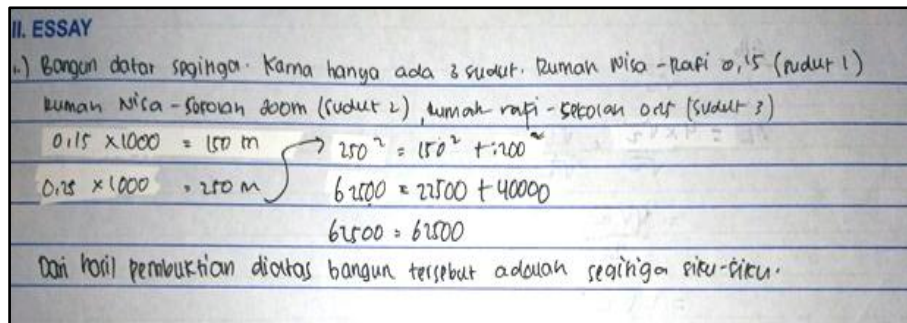 II. ESSAY
1.) Bangun datar segitiga. Karna hanya ada 3 sudut. Rumah Nisa - Rafi 0,15 (sudut 1)
Rumah Nisa - Sekolah 200m (sudut 2), rumah rafi - sekolah 0,25 (sudut 3)
0,15 × 1000 = 150 m → 250² = 150² + 200²
0,25 × 1000 = 250 m 62500 = 22500 + 40000
62500 = 62500
Dari hasil pembuktian diatas bangun tersebut adalah segitiga siku-siku.